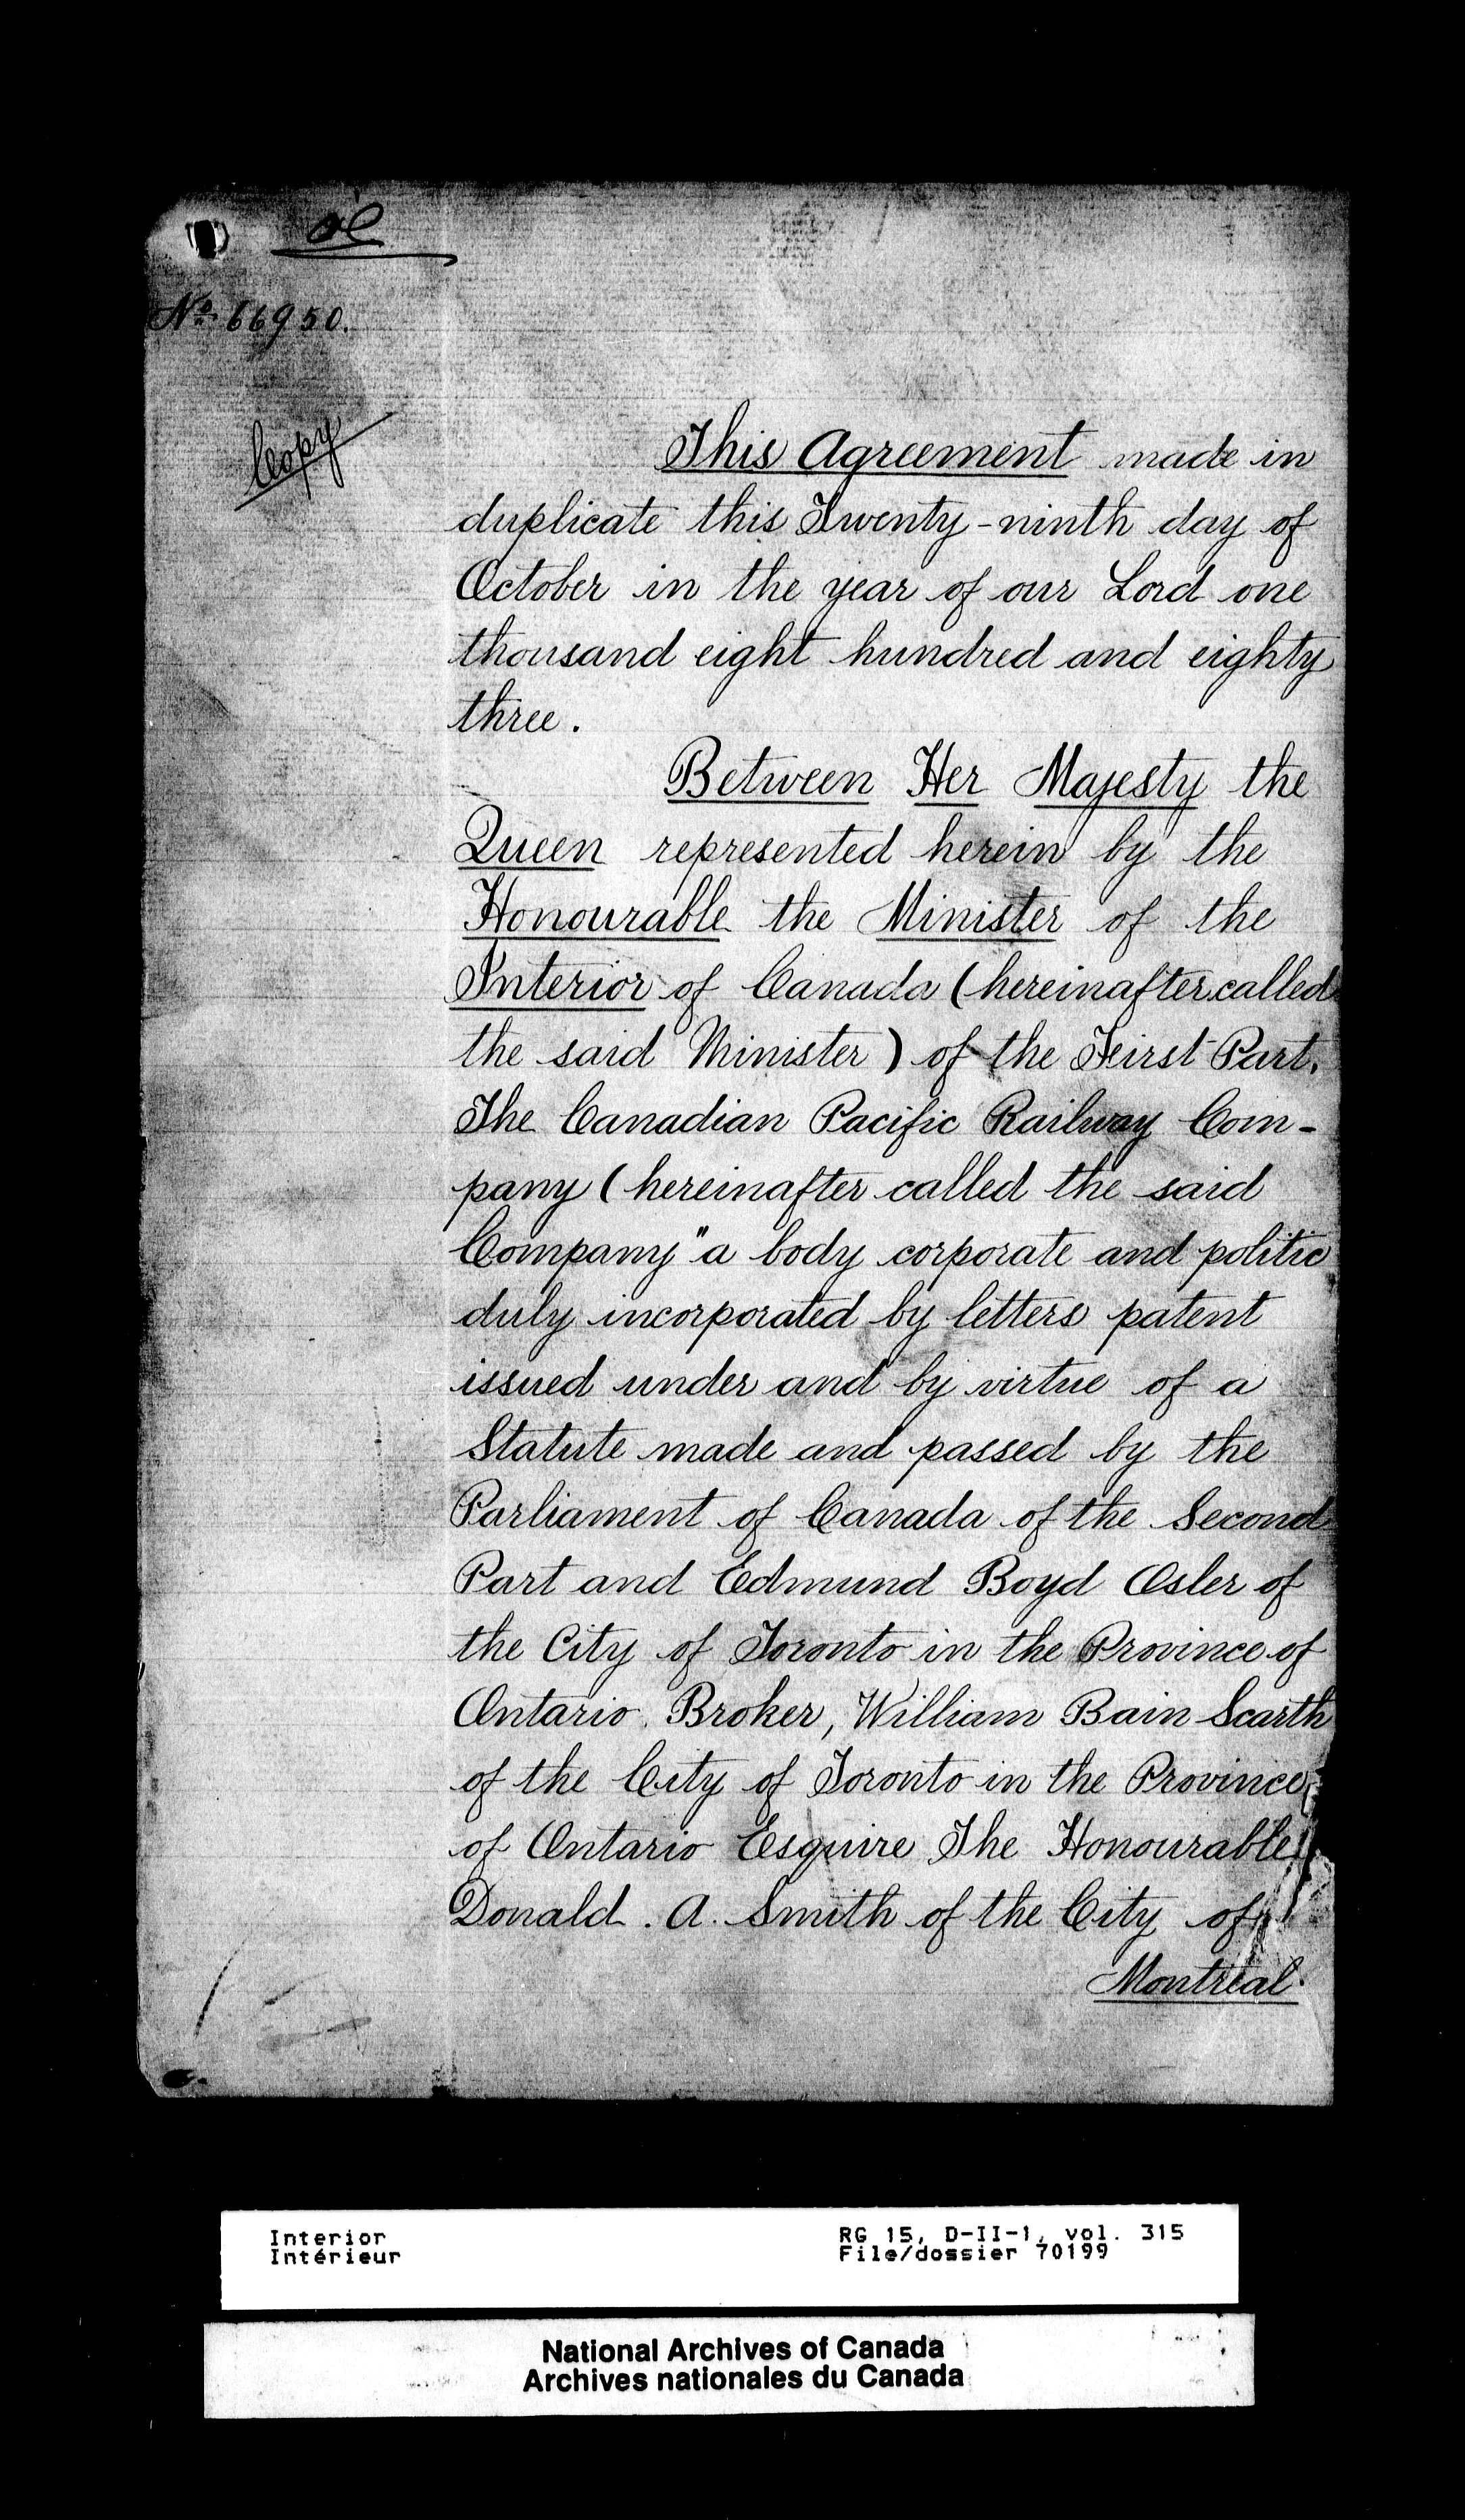 No. 66950.
Copy
This Agreement made in
duplicate this Twenty-ninth day of
October in the year of our Lord one
thousand eight hundred and eighty
three.
Between Her Majesty the
Queen represented herein by the
Honourable the Minister of the
Interior of Canada (hereinafter called
the said Minister) of the First Part.
The Canadian Pacific Railway Com-
pany (hereinafter called the said
Company" a body corporate and politic
duly incorporated by letters patent
issued under and by virtue of a
Statute made and passed by the
Parliament of Canada of the Second
Part and Edmund Boyd Osler of
the City of Toronto in the Province of
Ontario. Broker, William Bain Scarth
of the City of Toronto in the Province
of Ontario Esquire The Honourable
Donald. A. Smith of the City of
Montreal
Interior
Intérieur
RG 15, D-II-1, vol. 315
File/dossier 70199
National Archives of Canada
Archives nationales du Canada